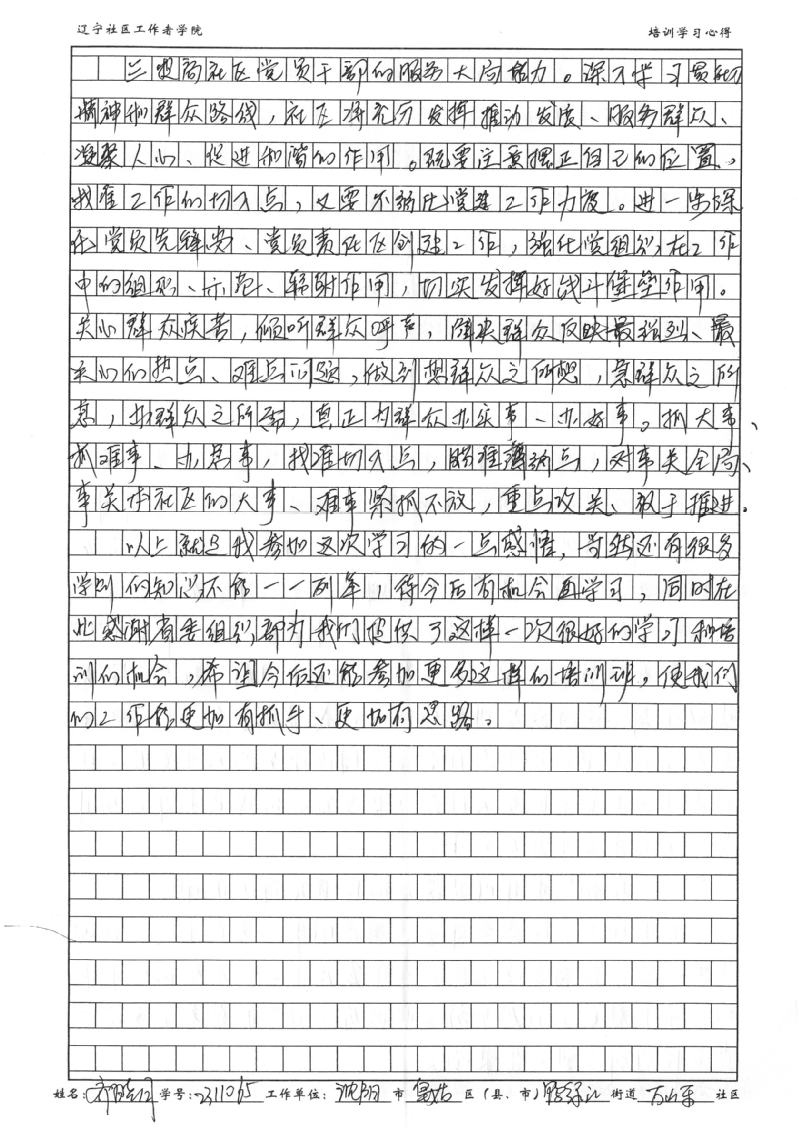 辽宁社区工作者学院 培训学习心得
三提高社区党员干部的服务大局能力。深入学习贯彻
精神和群众路线,社区将充分发挥推动发展、服务群众、
凝聚人心、促进和谐的作用。既要注意摆正自己的位置,
找准工作的切入点,又要不弱化党建工作力度。进一步深
化党员先锋岗、党员责任区创建工作,强化党组织在工作
中的组织、示范、辐射作用,切实发挥好战斗堡垒作用。
关心群众疾苦,倾听群众呼声,解决群众反映最强烈、最
关心的热点、难点问题,做到想群众之所想,急群众之所
急,办群众之所需,真正为群众办实事、办好事。抓大事、
抓难事、办急事,找准切入点,瞄准薄弱点,对事关全局、
事关本社区的大事、难事紧抓不放,重点攻关、敢于推进。
以上就是我参加这次学习的一点感悟,当然还有很多
学到的知识不能一一列举,待今后有机会再学习,同时在
此感谢省委组织部为我们提供了这样一次很好的学习和培
训的机会,希望今后还能参加更多这样的培训班,使我们
的工作能更加有抓手、更加有思路。
姓名: 学号:2311065 工作单位:沈阳 市 皇姑 区(县、市) 鸭绿江 街道 社区